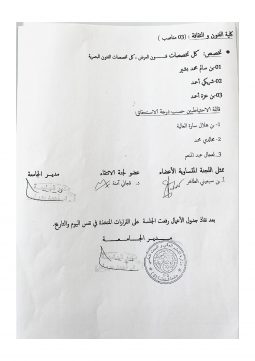 كلية الفنون و الثقافة : (03 مناصب )
• تخصص: كل تخصصات فنون العرض - كل تخصصات الفنون البصرية
01-بن صالح محمد بشير
02-شريكي أحمد
03-بن عزة أحمد
قائمة الاحتياطيين حسب درجة الاستحقاق:
1- بن هلال سارة العالية
2- مخالدي محمد
3- عبد المنعم
ممثل اللجنة المتساوية الأعضاء عضو لجنة الانتقاء مدير الجامعة
أ. بن سبعيني الطاهر د. آمنة
بعد نفاذ جدول الأعمال رفعت الجلسة على القرارات المتخذة في نفس اليوم والتاريخ.
مدير الجامعة